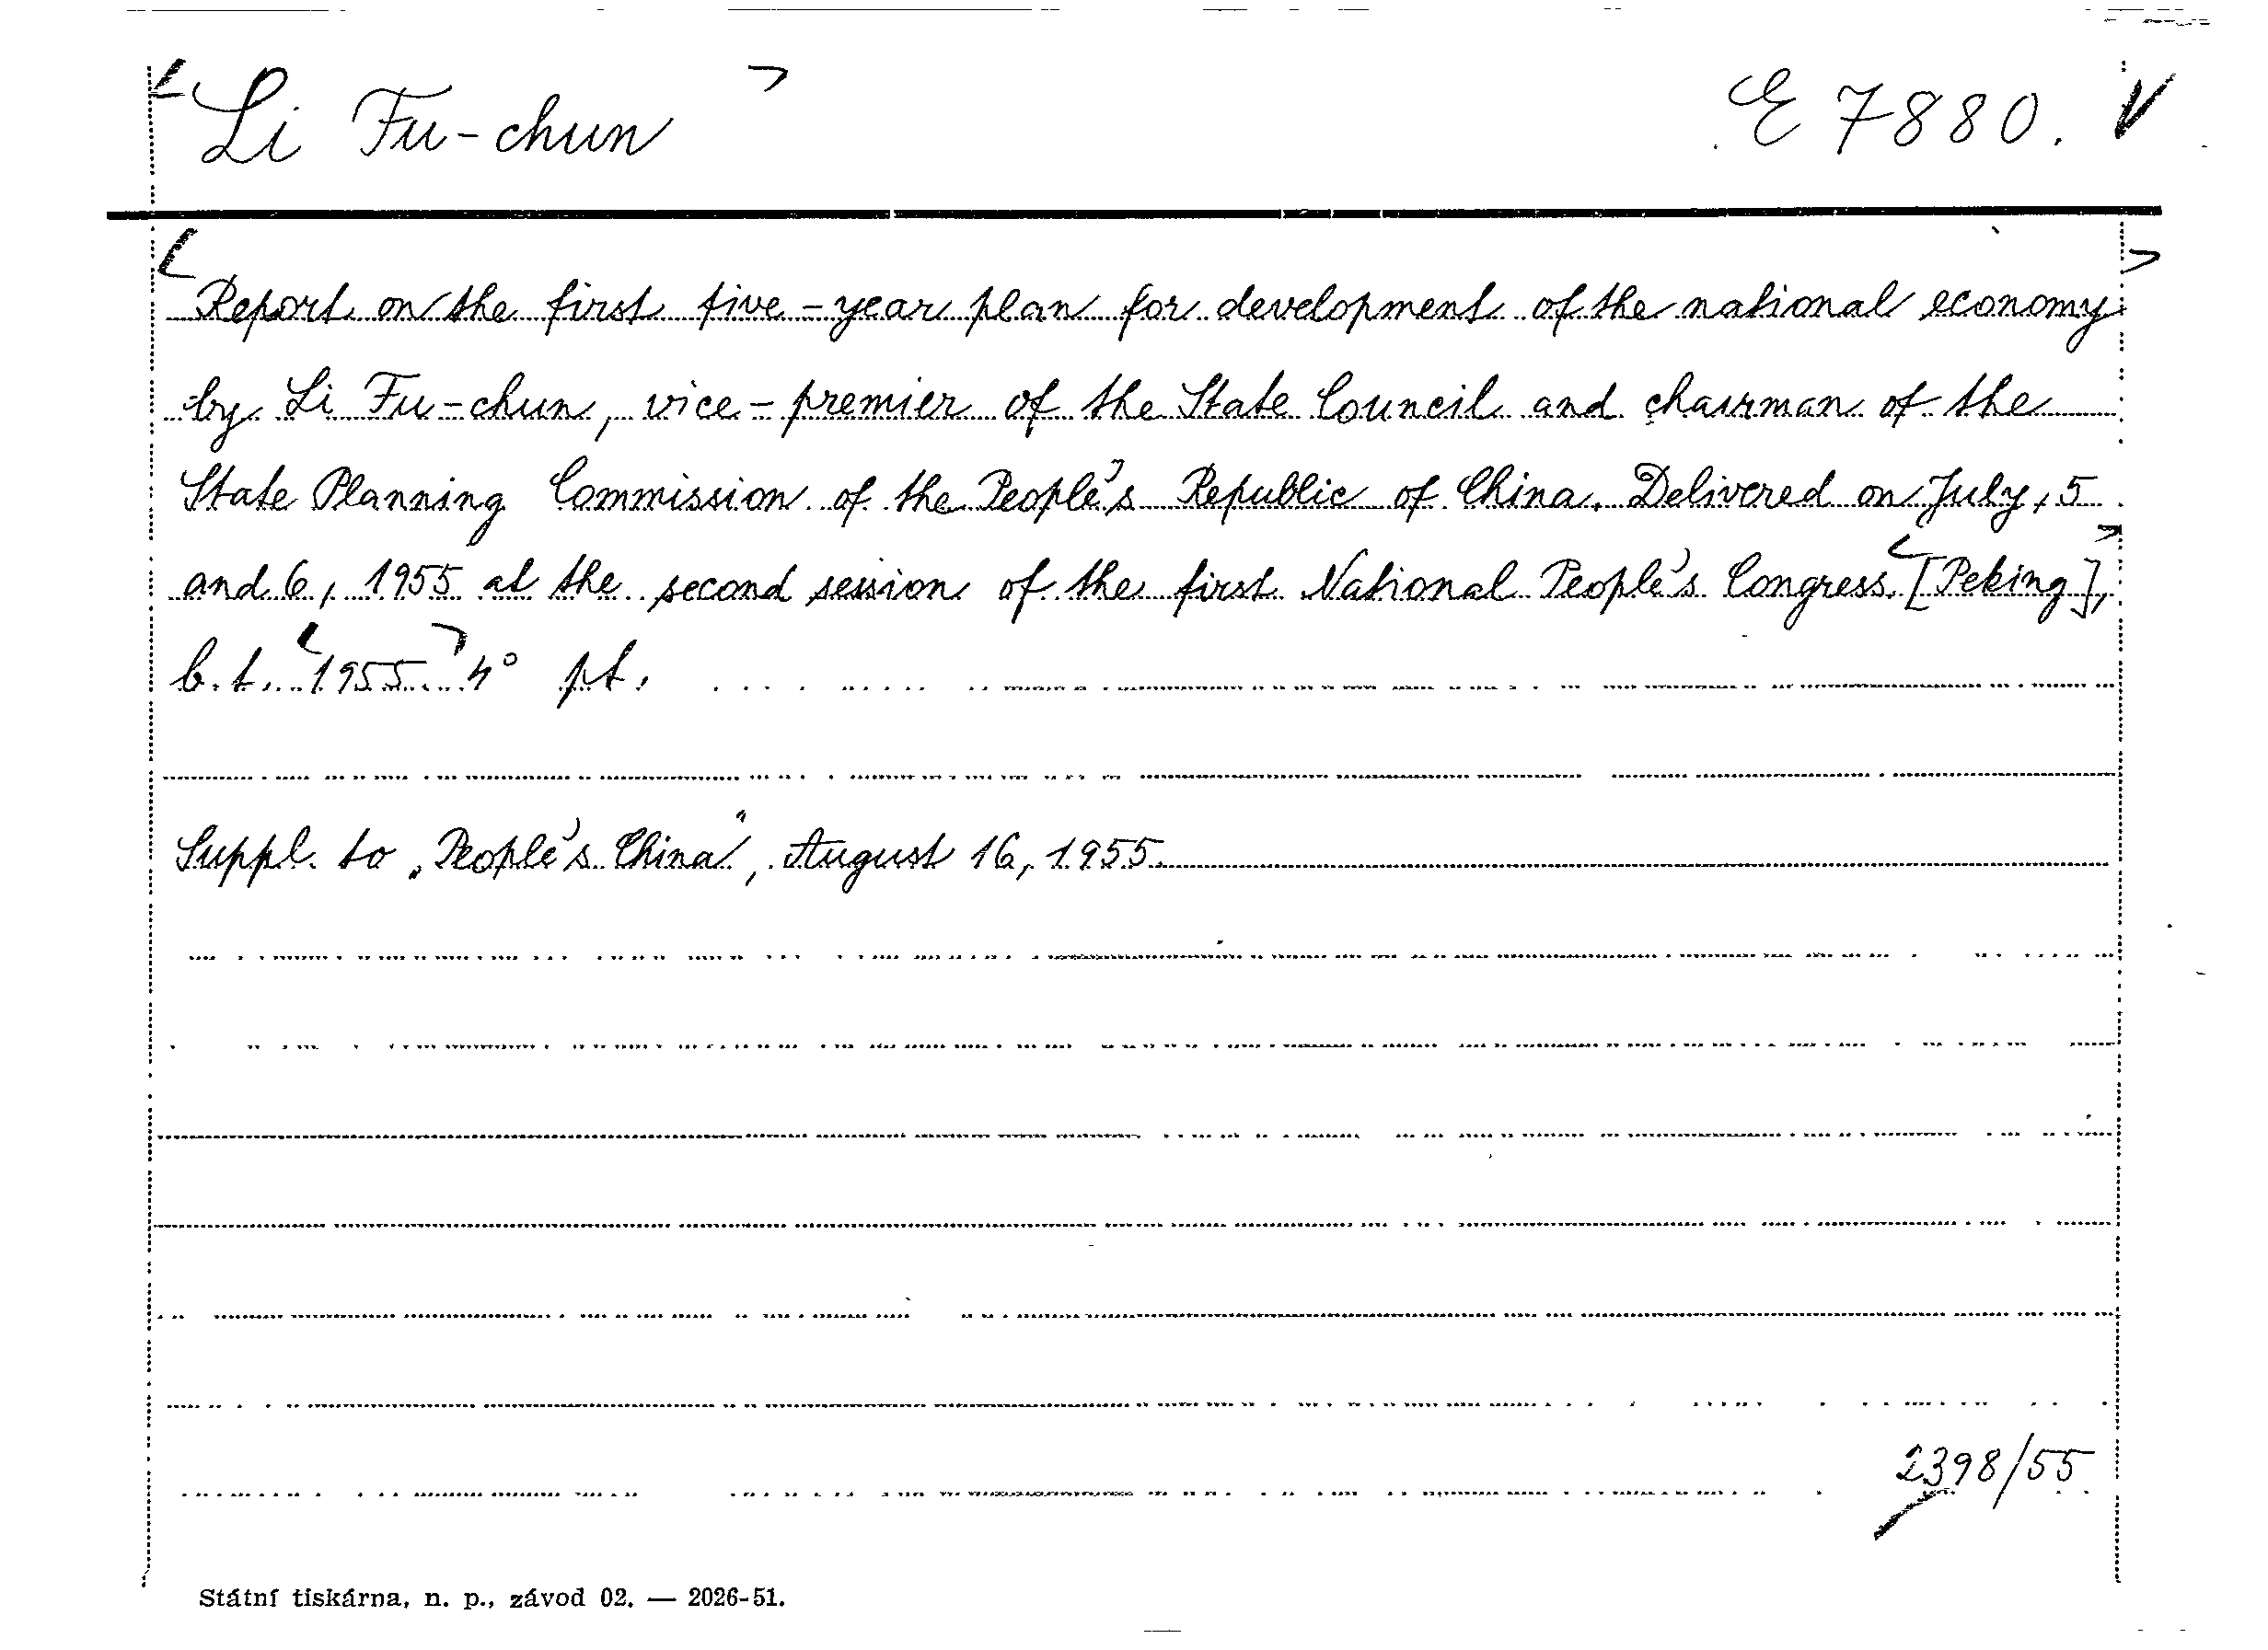 Li Fu-chun E 7880. V
Report on the first five-year plan for development of the national economy
by Li Fu-chun, vice-premier of the State Council and chairman of the
State Planning Commission of the People's Republic of China. Delivered on July, 5
and 6, 1955 at the second session of the first National People's Congress. [Peking],
b.t. 1955. 4° pt.
Suppl. to „People's China", August 16, 1955.
2398/55
Státní tiskárna, n. p., závod 02. — 2026-51.